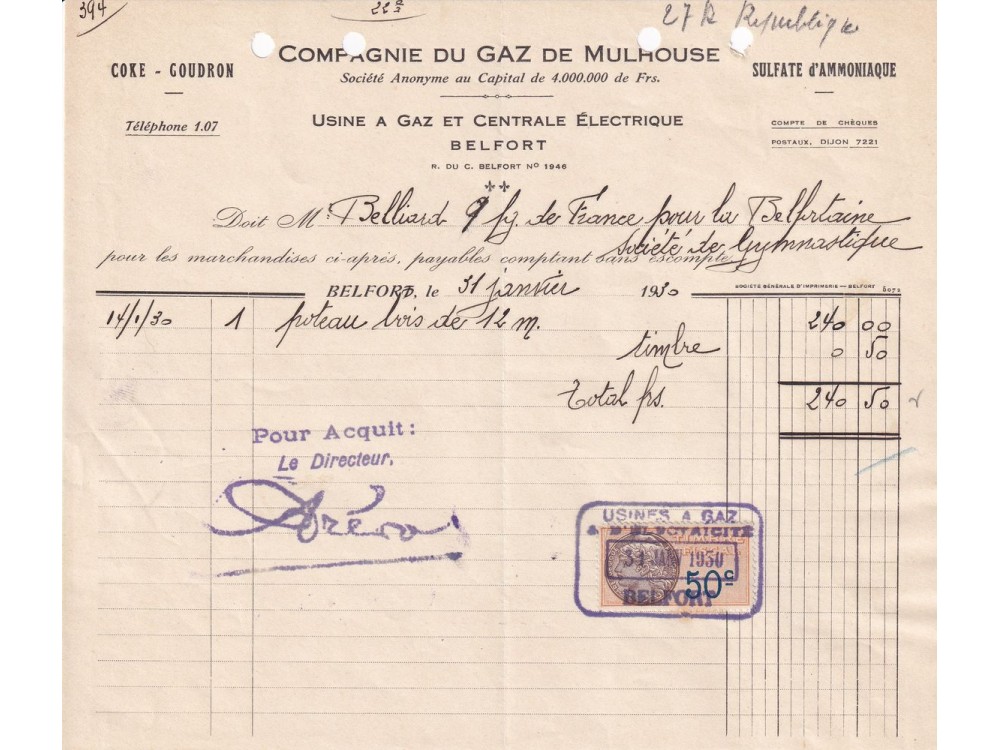 394
27 R République
COMPAGNIE DU GAZ DE MULHOUSE
COKE - GOUDRON
SULFATE d'AMMONIAQUE
Société Anonyme au Capital de 4.000.000 de Frs.
Téléphone 1.07
USINE A GAZ ET CENTRALE ÉLECTRIQUE
COMPTE DE CHÈQUES
POSTAUX, DIJON 7221
BELFORT
R. DU C. BELFORT No 1946
Doit M. Belliard 9 fg. de France pour la Belfortaine
Société de Gymnastique
pour les marchandises ci-après, payables comptant sans escompte
BELFORT, le 31 janvier 1930
SOCIÉTÉ GÉNÉRALE D'IMPRIMERIE — BELFORT
14/1/30 1 poteau bois de 12 m. 240 00
timbre 0 50
Total frs. 240 50
Pour Acquit:
Le Directeur,
USINES A GAZ
& D'ELECTRICITE
31 JAN 1930
50c
BELFORT